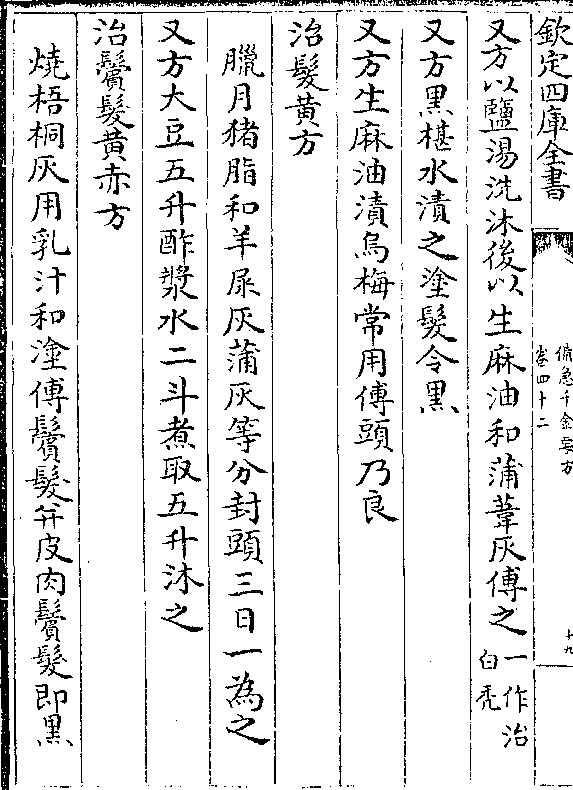 欽定四庫全書
備急千金要方
卷四十二
十九
又方以鹽湯洗沐後以生麻油和蒲葦灰傅之一作治白禿
又方黑椹水漬之塗髮令黒
又方生麻油漬烏梅常用傅頭乃良
治髮黄方
臘月猪脂和羊屎灰蒲灰等分封頭三日一為之
又方大豆五升酢漿水二斗煮取五升沐之
治鬢髮黄赤方
燒梧桐灰用乳汁和塗傅鬢髮并皮肉鬢髮即黒